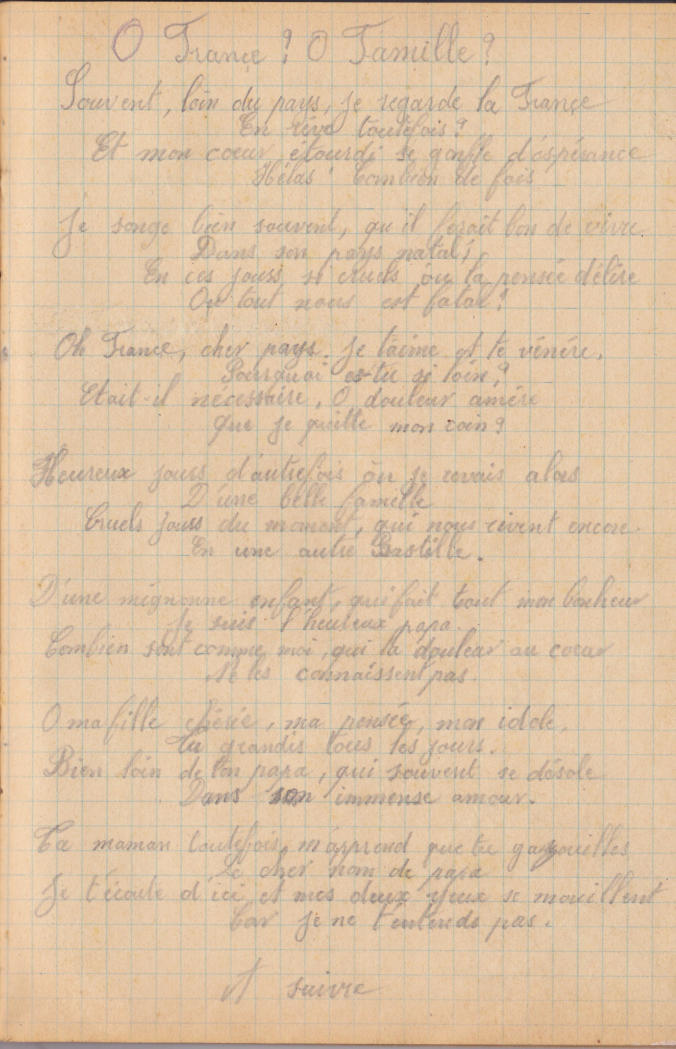 O France ? O Famille ?
Souvent, loin du pays, je regarde la France
En rêve toutefois ?
Et mon coeur étourdi se gonfle d'espérance
Hélas ! Combien de fois
Je songe bien souvent, qu'il ferait bon de vivre
Dans son pays natal,
En ces jours si cruels ou la pensée délire
Ou tout nous est fatal !
Oh France, cher pays. Je t'aime et te vénére,
Pourquoi es-tu si loin ?
Etait-il nécessaire, O douleur amére
Que je quitte mon coin ?
Heureux jours d'autrefois où je revais alors
D'une belle famille
Cruels jours du moment, qui nous rivent encore.
En une autre Bastille.
D'une mignonne enfant, qui fait tout mon bonheur
Je suis l'heureux papa.
Combien sont comme moi, qui la douleur au coeur
Ne les connaissent pas.
O ma fille chérie, ma pensée, mon idole,
Tu grandis tous les jours.
Bien loin de ton papa, qui souvent se désole
Dans son immense amour.
Ta maman toutefois, m'apprend que tu gazouilles
Le cher nom de papa
Je t'écoute d'ici et mes deux yeux se mouillent
Car je ne t'entends pas.
A suivre